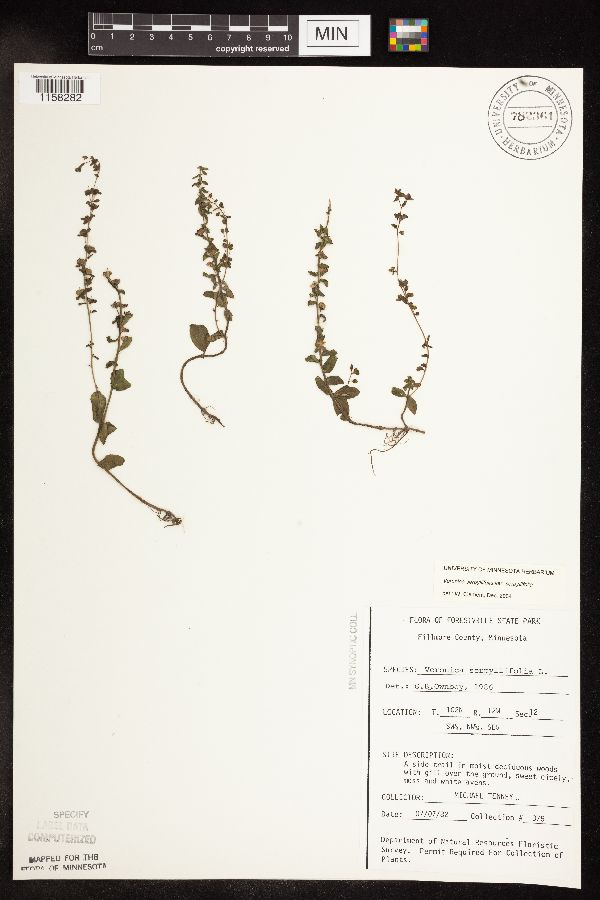 0 1 2 3 4 5 6 7 8 9 10
cm
copyright reserved
MIN
University of Minnesota
1158282
UNIVERSITY OF MINNESOTA
HERBARIUM
UNIVERSITY OF MINNESOTA HERBARIUM
Dec. 2004
FLORA OF FORESTVILLE STATE PARK
Fillmore County, Minnesota
SPECIES: Veronica serpyllifolia L.
Det.: G.B. Ownbey, 1986
LOCATION: T. 102N R. 12W Sec 12
SITE DESCRIPTION:
A side trail in moist deciduous woods
with gill over the ground, sweet cicely,
moss and white avens.
COLLECTOR: MICHAEL TENNEY
Date: 07/07/82 Collection #
Department of Natural Resources Floristic
Survey. Permit Required For Collection of
Plants.
MN SYNOPTIC COLL.
SPECIFY
LABEL DATA
COMPUTERIZED
MAPPED FOR THE
FLORA OF MINNESOTA